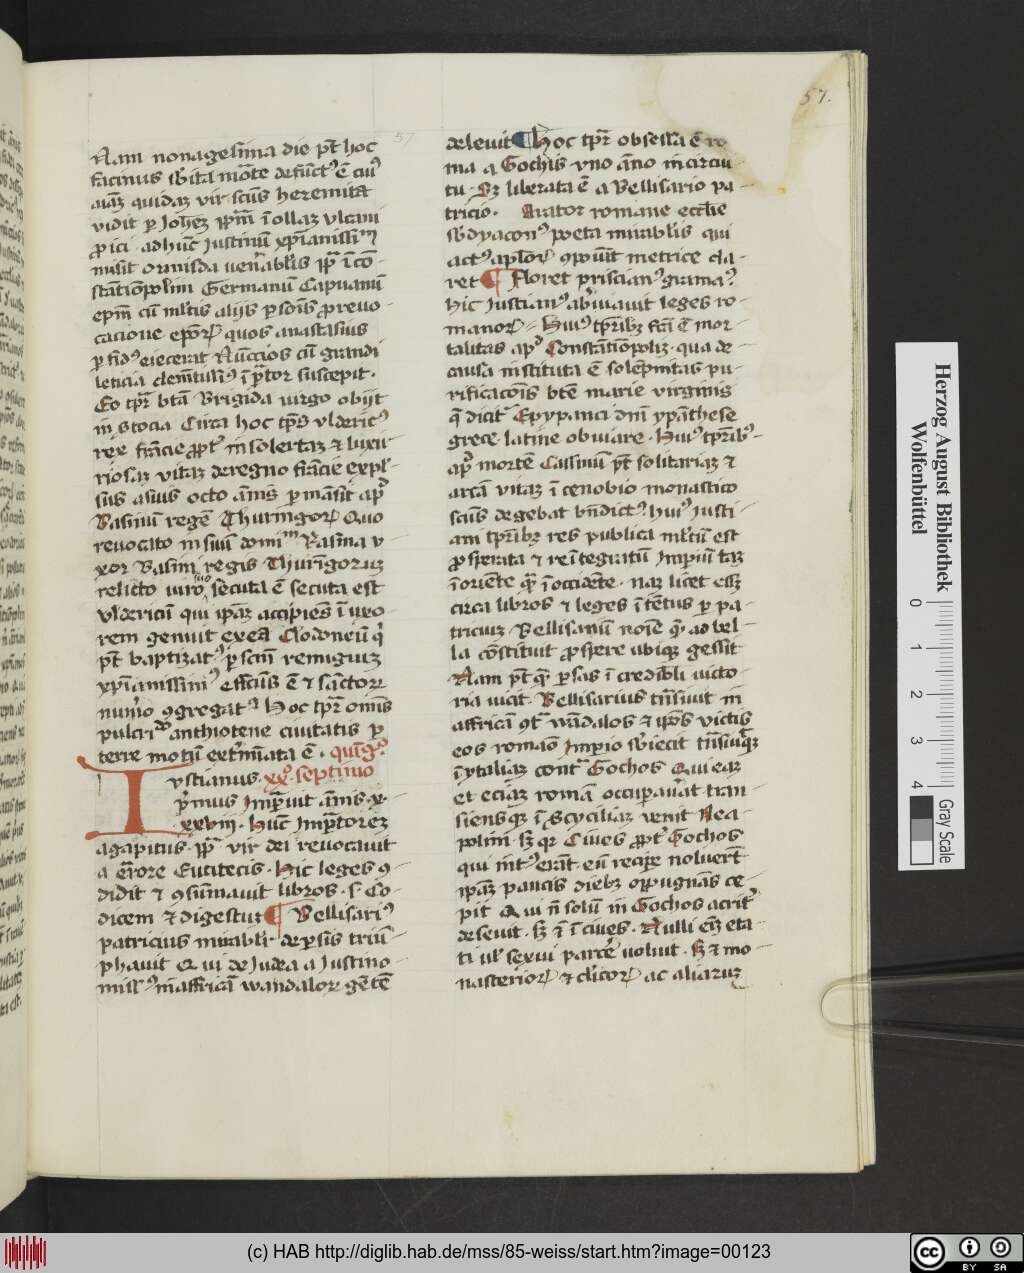 57.
57
Nam nonagesima die pt̄ hoc
facinus sb̄ita mōte defunctꝰ ē cuiꝰ
aiāꝫ quidaꝫ vir scūs heremita
vidit ꝑ Joh̄eꝫ pp̄m ī ollaꝫ vlcani
ꝓici · ad hūc Justinū xp̄ianissimū
misit ormisda ven̄abil̄is pp̄ ī cō-
stātiōpolim Germanū Capuanū
ep̄m cū ml̄tis alijs ꝑsōis ꝓ revo-
cacione ep̄oꝝ quos anastasius
ꝑfidꝰ eiecerat Nūccios cū grandi
leticia ī ꝑator suscepit ·
Eo tp̄r btā Brigida virgo obijt
in scocia Circa hoc tp̄s vldericꝰ
rex francie ꝓpt̄ insolertaꝫ ⁊ luxu
riosaꝫ vitaꝫ de regno francie expl̄-
sus a suis octo ānis ꝑmāsit ap̄
Basinū regē Thuringoꝝ Quo
revocato in suū Basina v-
xor Basini regis Thuringoruꝫ
relicto viro suo secuta ē secuta est
vldericū qui ip̄aꝫ accipiēs ī uxo-
rem genuit ex ea Clodoneū q̄
pt̄ baptizatꝰ ꝑ scm̄ remigiuꝫ
xp̄ianissimꝰ effectus ē ⁊ sāctoꝝ
nūo ꝯgregatꝰ Hoc tp̄r omīs
pulcritudo anthiocene civitatis ꝑ
terre motū ext̄mīata ē · quīgē°
Iustianus · xx° septimo
p̄mus Imꝑavit ānis · x
xxviij · Hūc Imꝑatoreꝫ
agapitus · pp̄ vir dei revocavit
a errore Eutitecis · Hic leges ꝯ
didit ⁊ ꝯsūmavit libros · s · Co-
dicem ⁊ digestuꝫ ¶ Bellisariꝰ
patricius mirabil̄r de ꝑsis triū-
phavit Qui de Judea a Justino
missꝰ in affricā wandaloꝝ gētē
delevit ¶ Hoc tp̄r obsessa ē ro
ma a Gothis vno āno in circui
tu · Sꝫ liberata ē a Bellisario pa-
tricio · Arator romane ecc̄lie
sb̄dyaconꝰ poeta mirabil̄is qui
actꝰ apl̄oꝝ ꝯpoūit metrice cla-
ret ¶ Floret priscianꝰ gramaticꝰ
Hic Justianꝰ ab̄viavit leges ro-
manoꝝ = Huiꝰ tp̄ribꝫ fc̄ā ē mor-
talitas ap̄ Constātiōpoliꝫ · qua de
causa instituta ē solēpnitas pu-
rificacōis btē marie virginis
q̄ dicit̄ Epypanci dnī ypāthese
grece · latine obviare · Huiꝰ tp̄ribꝰ-
ap̄ mortē Cassinū pt̄ solitariaꝫ ⁊
artā vitaꝫ ī cenobio monastico
scūs degebat bn̄dictꝰ huiꝰ Justi-
ani tp̄ribꝫ res publica ml̄tū est
ꝓsperata ⁊ reītegratū Impiū taꝫ
ī oriēte q̄ ī occidēte · naꝫ licet eēꝫ
circa libros ⁊ leges ītētus ꝑ pa-
tricium Bellisariū noīe q̄ ad bel-
la cōstituit ꝓspere ubiqꝫ gessit
Nam pt̄ q̄ ꝑsas ī credibl̄i victo-
ria vicit · Bellisarius tn̄sivit in
affricā ꝯt̄ wādalos ⁊ ip̄os victis
eos romāo Imꝑio sb̄iecit tn̄siuitqꝫ
ī ytaliaꝫ cont̄ Gothos Qui eaꝫ
et eciaꝫ romā occupavāt tran-
siensqꝫ ī Scyciliaꝫ venit Nea-
polim · sꝫ qꝛ Cives ꝓpt̄ Gothos
qui int̄ erāt · eū recipe noluerūt
ip̄aꝫ paucis diebꝫ oppugnās ce-
pit Qui n̄ solū in Gothos acrit̄
desevit · sꝫ ⁊ ī cives · Nulli eīꝫ eta-
ti ul̄ sexui parcere voluit · sꝫ ⁊ mo-
nasterioꝝ ⁊ clicoꝝ ac aliaruꝫ
Herzog August Bibliothek
Wolfenbüttel
0 1 2 3 4
Gray Scale
(c) HAB http://diglib.hab.de/mss/85-weiss/start.htm?image=00123
cc BY SA